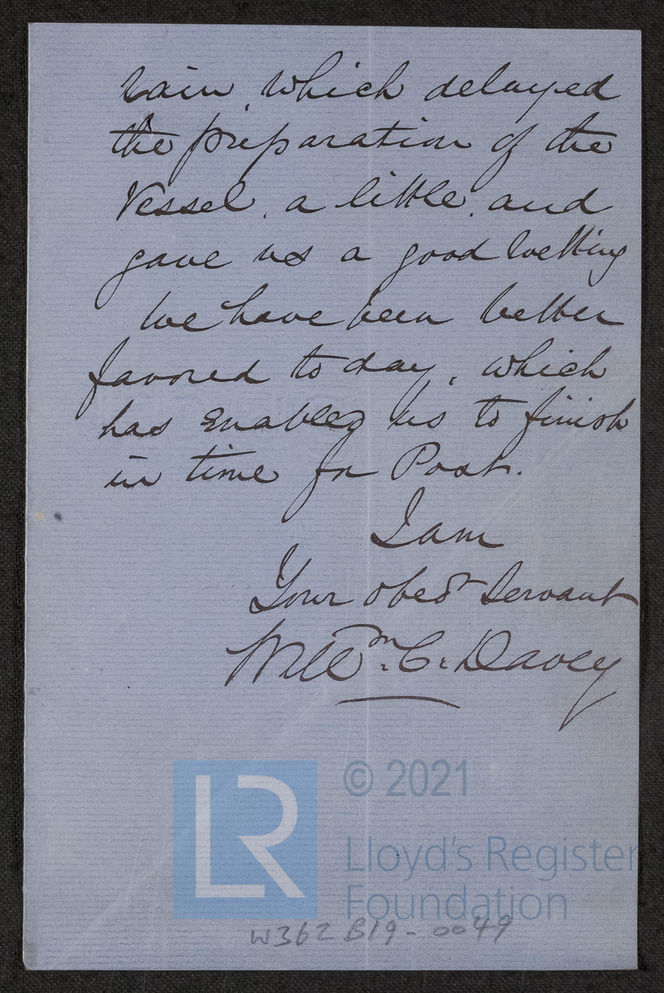 rain, which delayed
the preparation of the
Vessel, a little, and
gave us a good wetting
We have been better
favored to day, which
has enabled us to finish
in time for Post.
I am
Your obedt Servant
Willm. C. Davey
LR
© 2021
Lloyd's Register
Foundation
W362 B19 - 0049